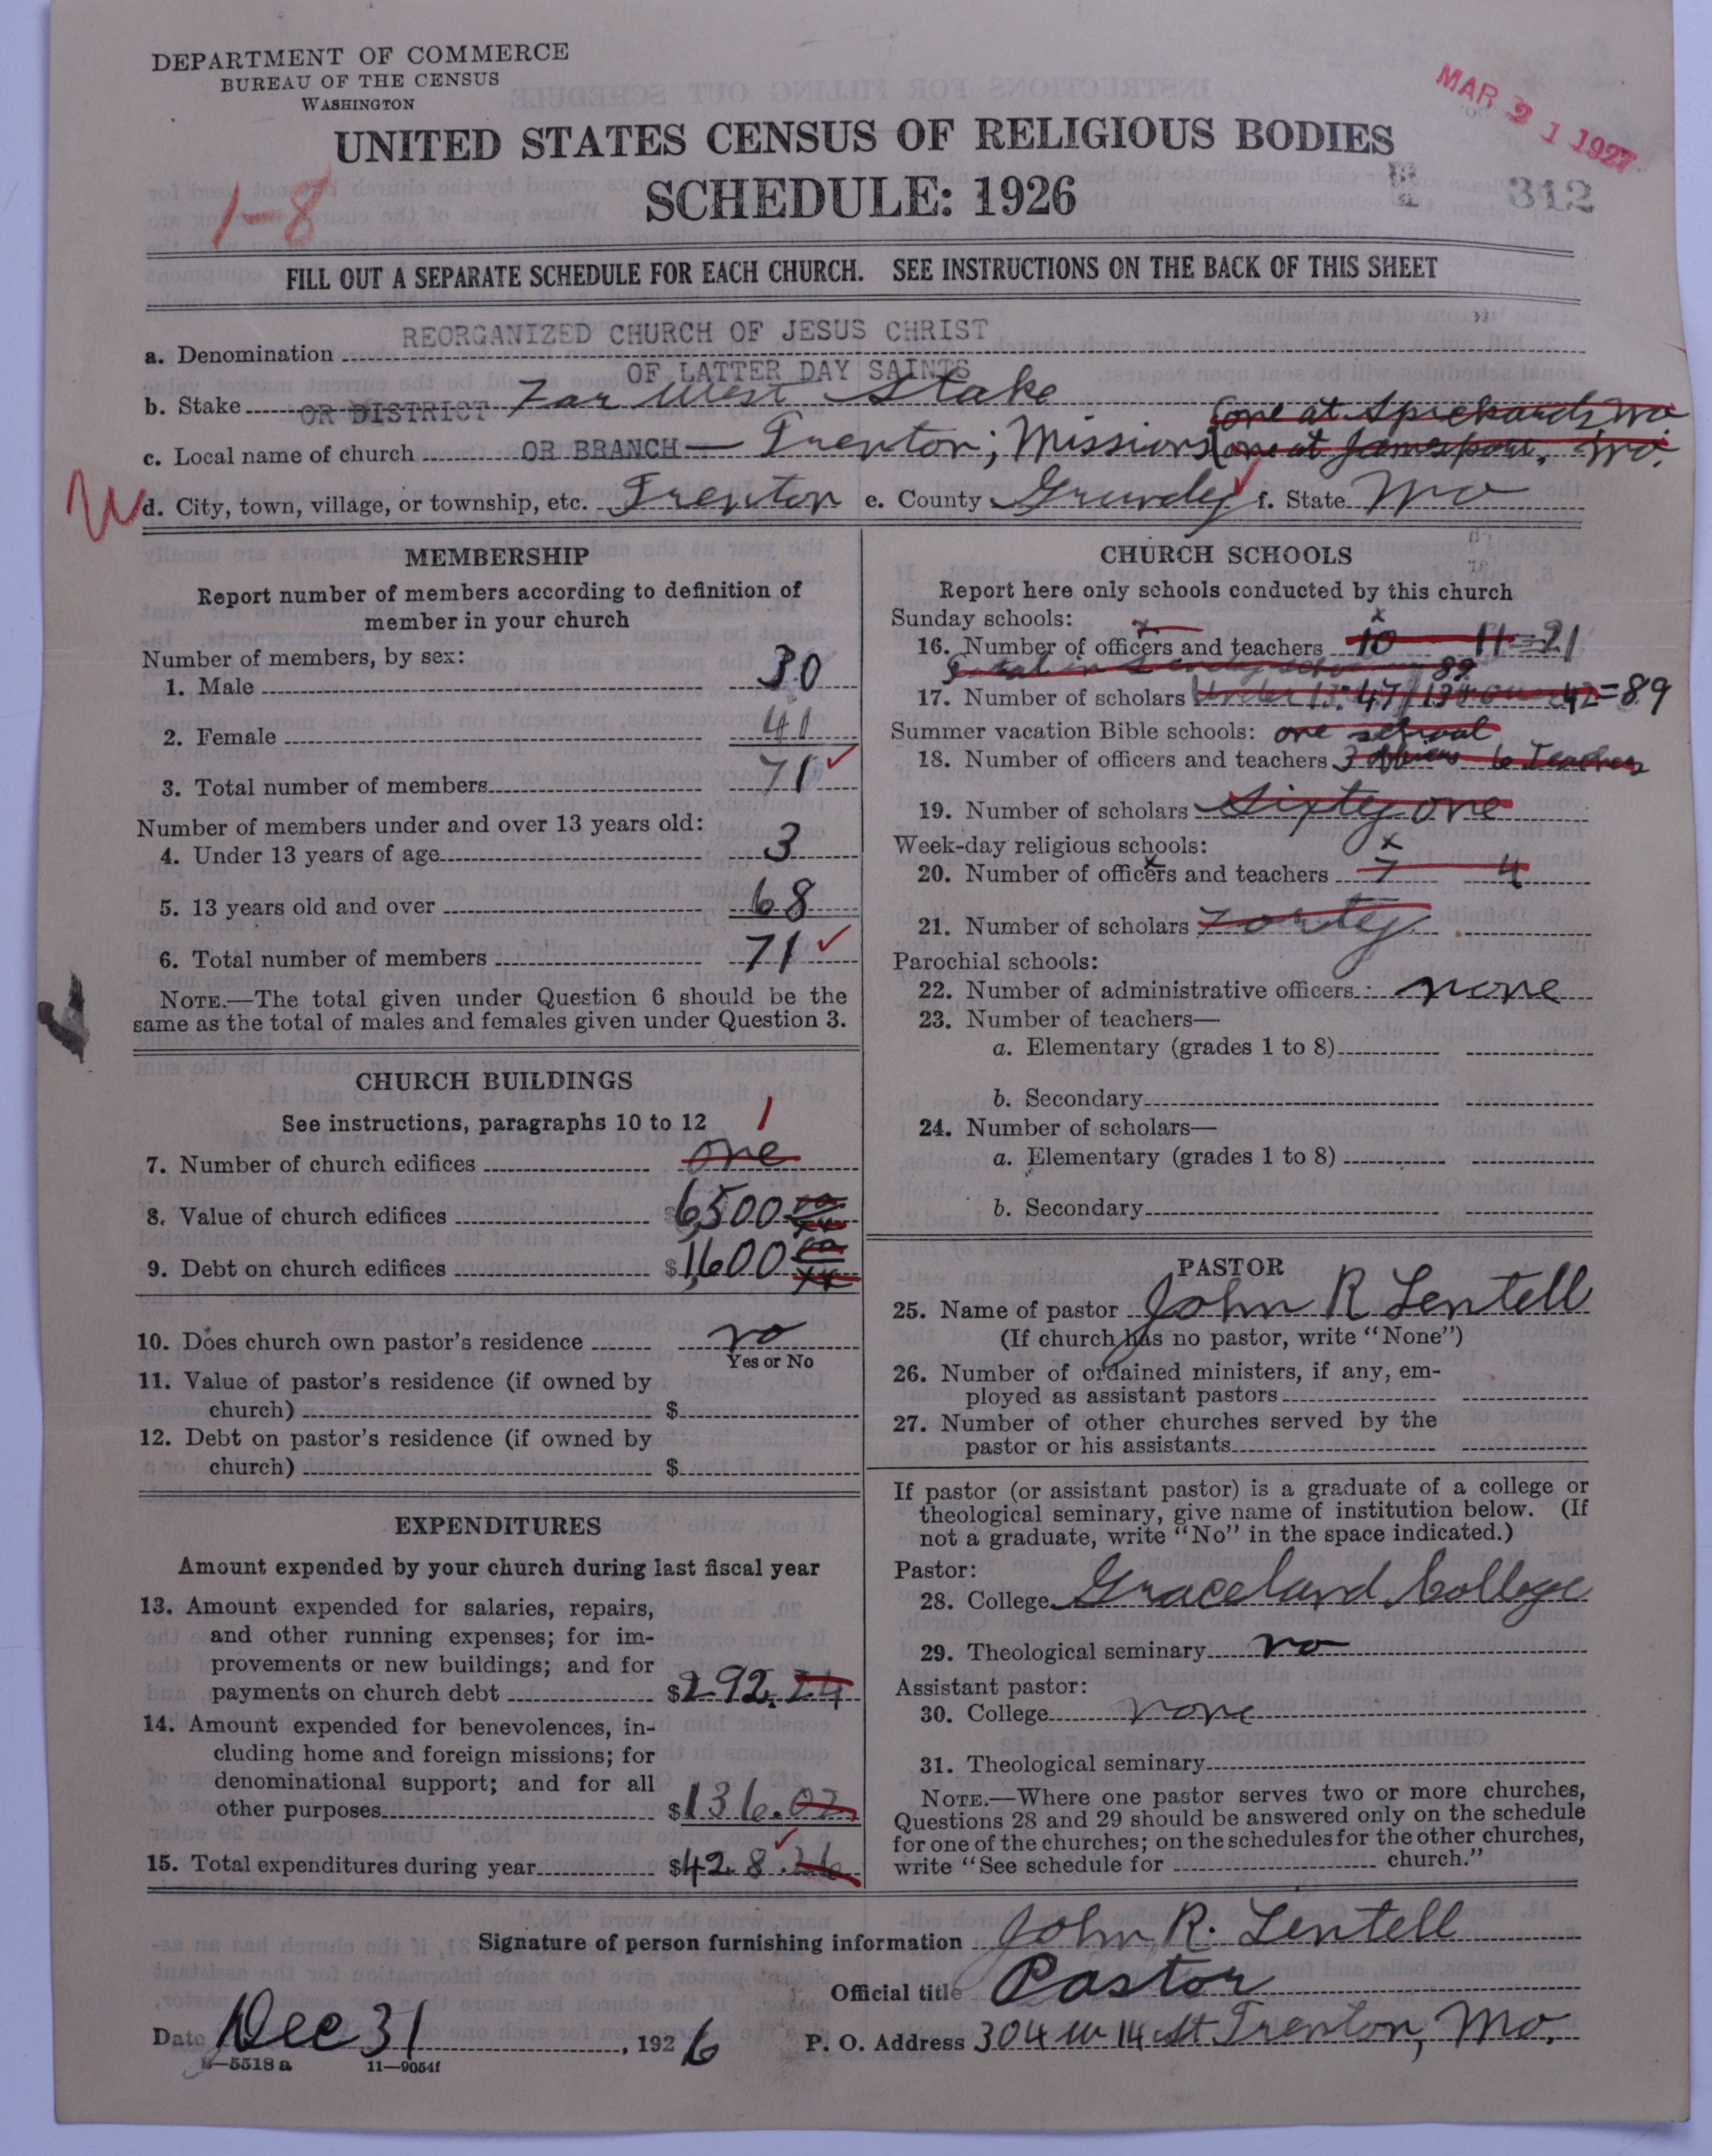 DEPARTMENT OF COMMERCE
BUREAU OF THE CENSUS
WASHINGTON
MAR 21 1927
UNITED STATES CENSUS OF RELIGIOUS BODIES
1-8
SCHEDULE: 1926
312
FILL OUT A SEPARATE SCHEDULE FOR EACH CHURCH. SEE INSTRUCTIONS ON THE BACK OF THIS SHEET
a. Denomination REORGANIZED CHURCH OF JESUS CHRIST
OF LATTER DAY SAINTS
b. Stake OR DISTRICT Far West Stake
one at Spickards, Mo.
c. Local name of church OR BRANCH — Trenton; Missions one at Jamesport, Mo.
d. City, town, village, or township, etc. Trenton e. County Grundy f. State Mo
MEMBERSHIP
Report number of members according to definition of
member in your church
Number of members, by sex:
1. Male 30
2. Female 41
3. Total number of members 71
Number of members under and over 13 years old:
4. Under 13 years of age 3
5. 13 years old and over 68
6. Total number of members 71
NOTE.—The total given under Question 6 should be the
same as the total of males and females given under Question 3.
CHURCH BUILDINGS
See instructions, paragraphs 10 to 12
1
7. Number of church edifices one
8. Value of church edifices $6500
9. Debt on church edifices $1600
10. Does church own pastor's residence no
Yes or No
11. Value of pastor's residence (if owned by
church) $
12. Debt on pastor's residence (if owned by
church) $
EXPENDITURES
Amount expended by your church during last fiscal year
13. Amount expended for salaries, repairs,
and other running expenses; for im-
provements or new buildings; and for
payments on church debt $292.24
14. Amount expended for benevolences, in-
cluding home and foreign missions; for
denominational support; and for all
other purposes $136.02
15. Total expenditures during year $428.26
CHURCH SCHOOLS
Report here only schools conducted by this church
Sunday schools:
16. Number of officers and teachers 10 11=21
Total in Sunday school 89
17. Number of scholars Under 13: 47 / 13 & over 42=89
Summer vacation Bible schools: one school
18. Number of officers and teachers 3 officers 6 Teachers
19. Number of scholars Sixty one
Week-day religious schools:
20. Number of officers and teachers 7 4
21. Number of scholars Forty
Parochial schools:
22. Number of administrative officers none
23. Number of teachers—
a. Elementary (grades 1 to 8)
b. Secondary
24. Number of scholars—
a. Elementary (grades 1 to 8)
b. Secondary
PASTOR
25. Name of pastor John R Lentell
(If church has no pastor, write "None")
26. Number of ordained ministers, if any, em-
ployed as assistant pastors
27. Number of other churches served by the
pastor or his assistants
If pastor (or assistant pastor) is a graduate of a college or
theological seminary, give name of institution below. (If
not a graduate, write "No" in the space indicated.)
Pastor:
28. College Graceland College
29. Theological seminary no
Assistant pastor:
30. College none
31. Theological seminary
NOTE.—Where one pastor serves two or more churches,
Questions 28 and 29 should be answered only on the schedule
for one of the churches; on the schedules for the other churches,
write "See schedule for church."
Signature of person furnishing information John R. Lentell
Official title Pastor
Date Dec 31, 1926 P. O. Address 304 W 14 St Trenton, Mo.
8—5518 a 11—9054f